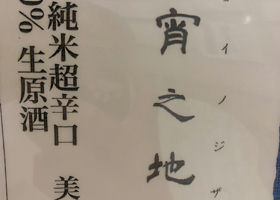 イノジザ
宵之地
純米超辛口 美
0% 生原酒